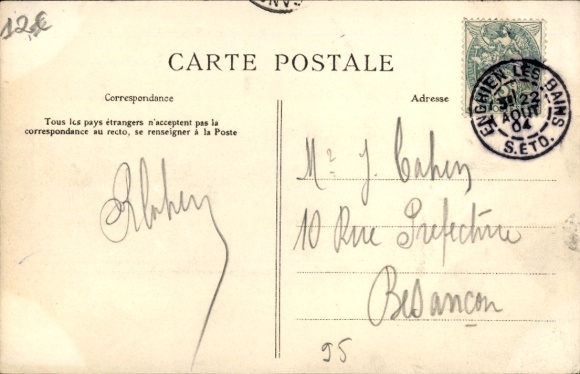 12€
CARTE POSTALE
Correspondance
Adresse
Tous les pays étrangers n'acceptent pas la
correspondance au recto, se renseigner à la Poste
ENGHIEN LES BAINS
22
AOUT
04
S.ETO.
Mr J. Cahen
10 Rue Préfecture
Besançon
95